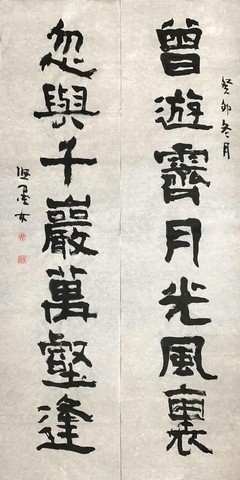 曾遊霽月光風裏
癸卯冬月
忽與千巖萬壑逢